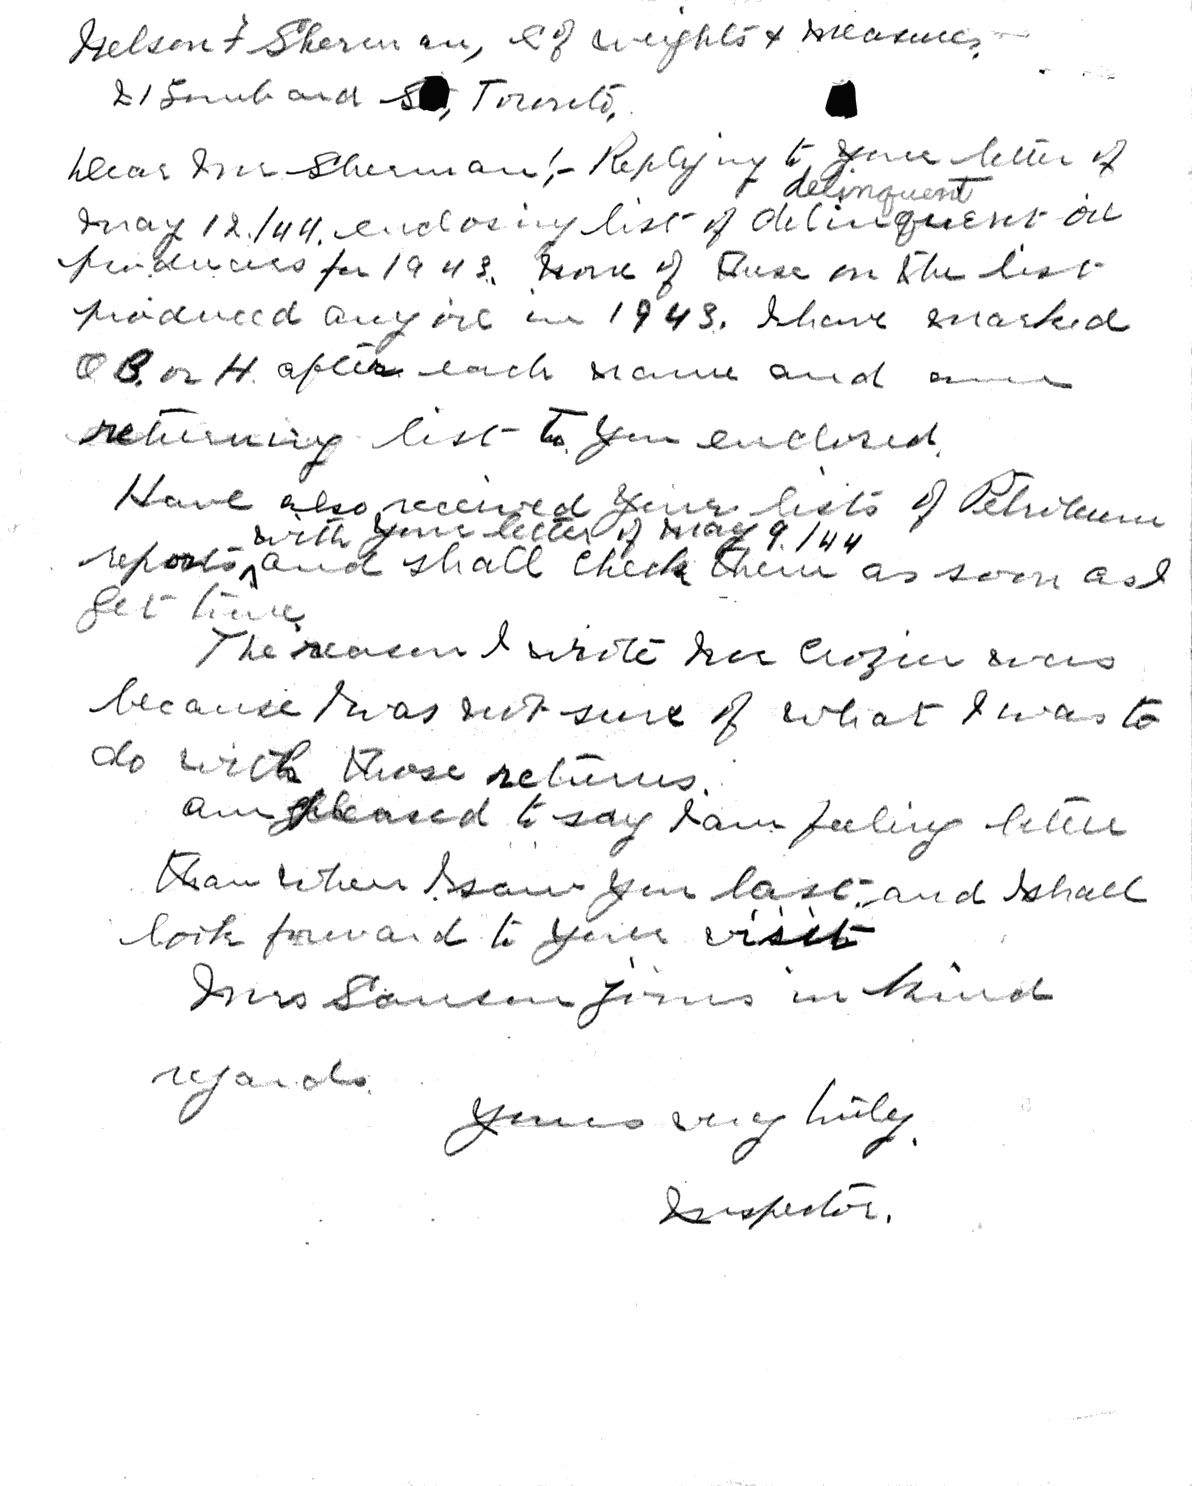 Nelson F Sherman, I of weights & measures.
21 Lombard St, Toronto.
Dear Mr Sherman;- Replying to your letter of
delinquent
May 12/44. enclosing list of delinquent oil
producers for 1943. None of these on the list
produced any oil in 1943. I have marked
B. or H. after each name and am
returning list to you enclosed.
Have also received your lists of Petroleum
with your letter of May 9/44
reports, and shall check them as soon as I
get time.
The reason I wrote Mr Crozier was
because I was not sure of what I was to
do with those returns.
am pleased to say I am feeling better
than when I saw you last, and I shall
look forward to your visit
Mrs Sanson joins in kind
regards.
Yours very truly,
Inspector.